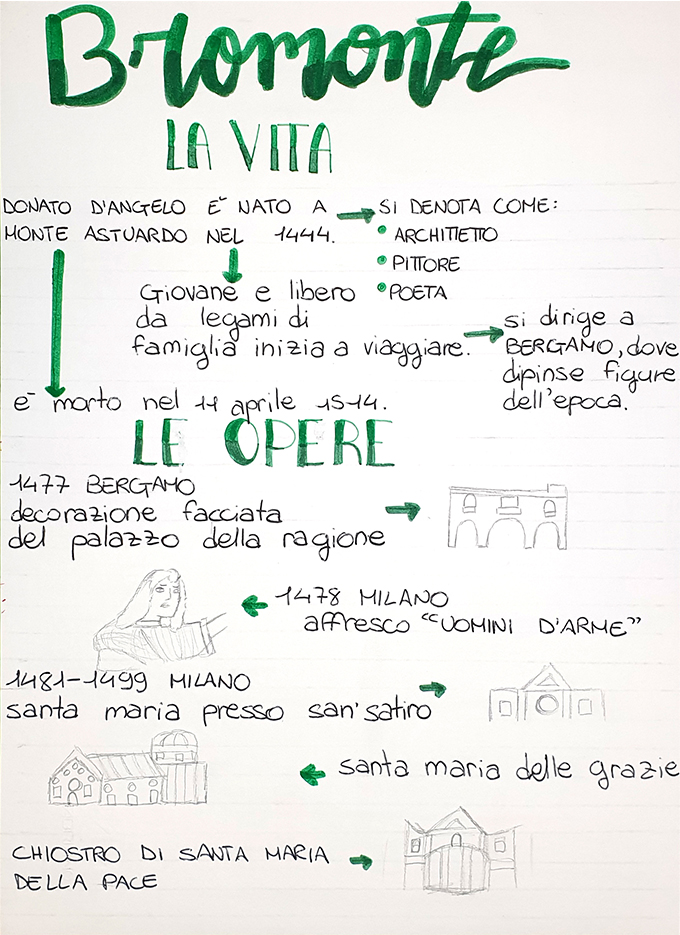 Bromonte
LA VITA
DONATO D'ANGELO E' NATO A
MONTE ASTUARDO NEL 1444.
SI DENOTA COME:
• ARCHITIETTO
• PITTORE
• POETA
Giovane e libero
da legami di
famiglia inizia a viaggiare.
si dirige a
BERGAMO, dove
dipinse figure
dell'epoca.
e' morto nel 11 aprile 1514.
LE OPERE
1477 BERGAMO
decorazione facciata
del palazzo della ragione
1478 MILANO
affresco "UOMINI D'ARME"
1481-1499 MILANO
santa maria presso san'satiro
santa maria delle grazie
CHIOSTRO DI SANTA MARIA
DELLA PACE